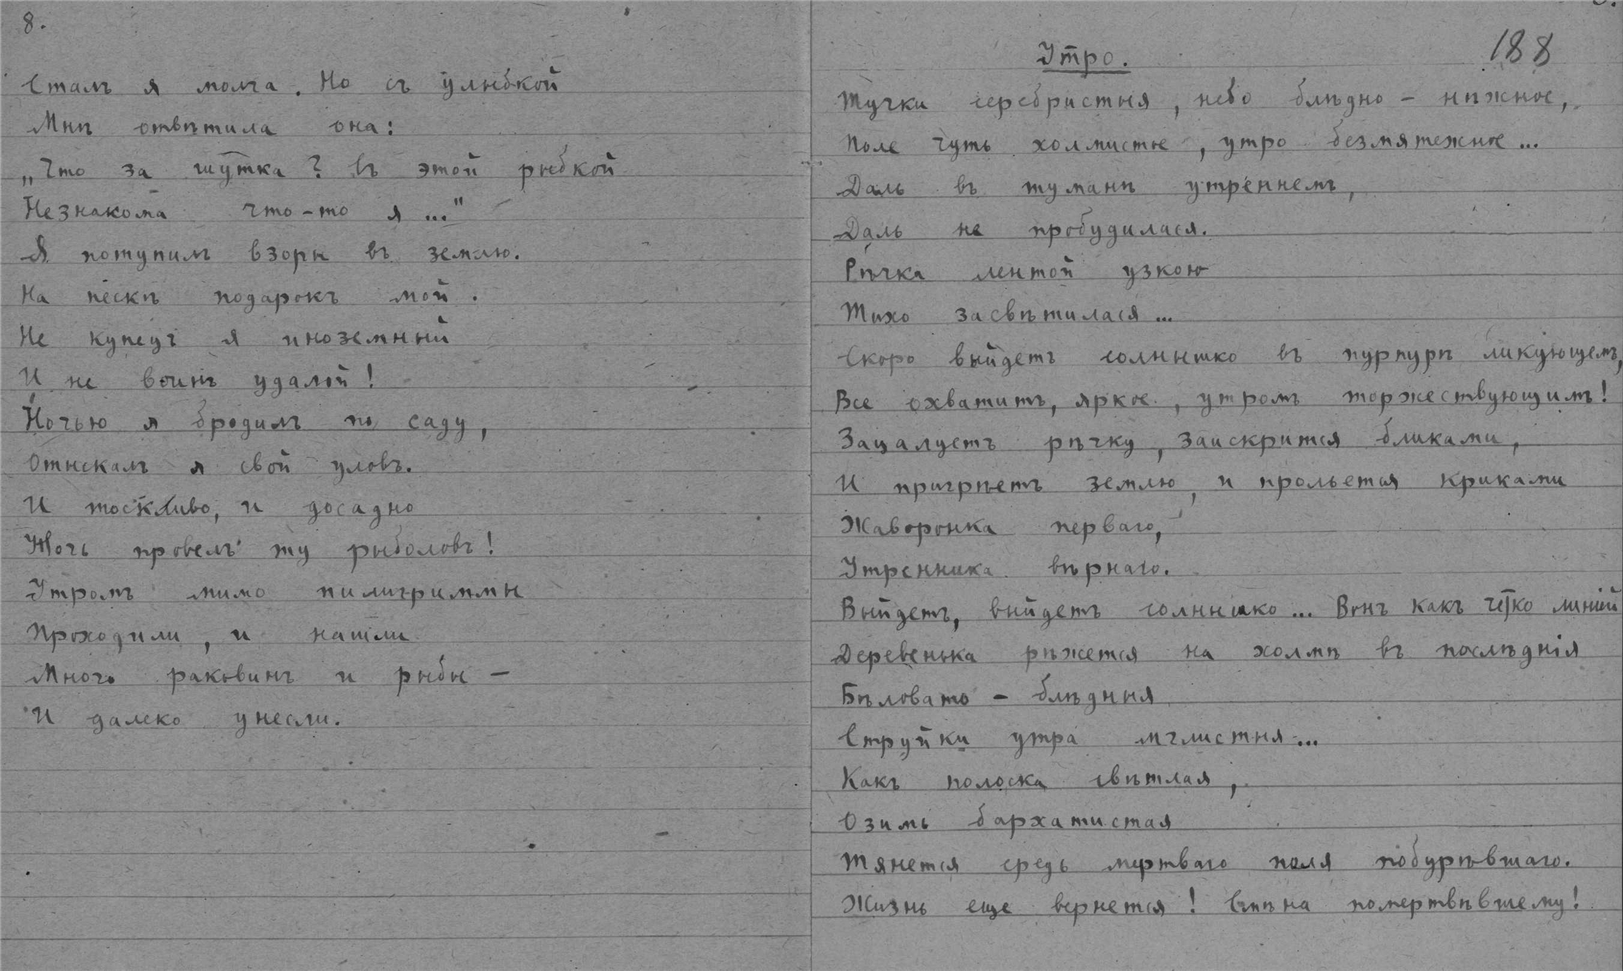 8.
Сталъ я молча. Но съ улыбкой
Мнѣ отвѣтила она:
„Что за шутка? Въ этой рыбкой
Незнакома что-то я..."
Я потупилъ взоры въ землю.
На пескѣ подарокъ мой.
Не купецъ я иноземный
И не воинъ удалой!
Ночью я бродилъ по саду,
Отыскалъ я свой уловъ.
И тоскливо, и досадно
Ночь провелъ ту рыболовъ!
Утромъ мимо пилигриммы
Проходили, и нашли
Много раковинъ и рыбы –
И далеко унесли.
188
Утро.
Тучки серебристыя, небо блѣдно – нѣжное,
Поле чуть холмистое, утро безмятежное...
Даль въ туманѣ утреннемъ,
Даль не пробудилася.
Рѣчка лентой узкою
Тихо засвѣтилася...
Скоро выйдетъ солнышко въ пурпурѣ ликующемъ,
Все охватитъ, яркое, утромъ торжествующимъ!
Зацалуетъ рѣчку, заискрится бликами,
И пригрѣетъ землю, и прольется криками
Жаворонка перваго,
Утренника вѣрнаго.
Выйдетъ, выйдетъ солнышко... Вонъ какъ четко линій
Деревенька рѣжется на холмѣ въ послѣднія
Бѣловато – блѣдныя
Струйки утра мглистыя...
Какъ полоска свѣтлая,
Озимь бархатистая
Тянется средь мертваго поля побурѣвшаго.
Жизнь еще вернется! Смѣна помертвѣвшему!